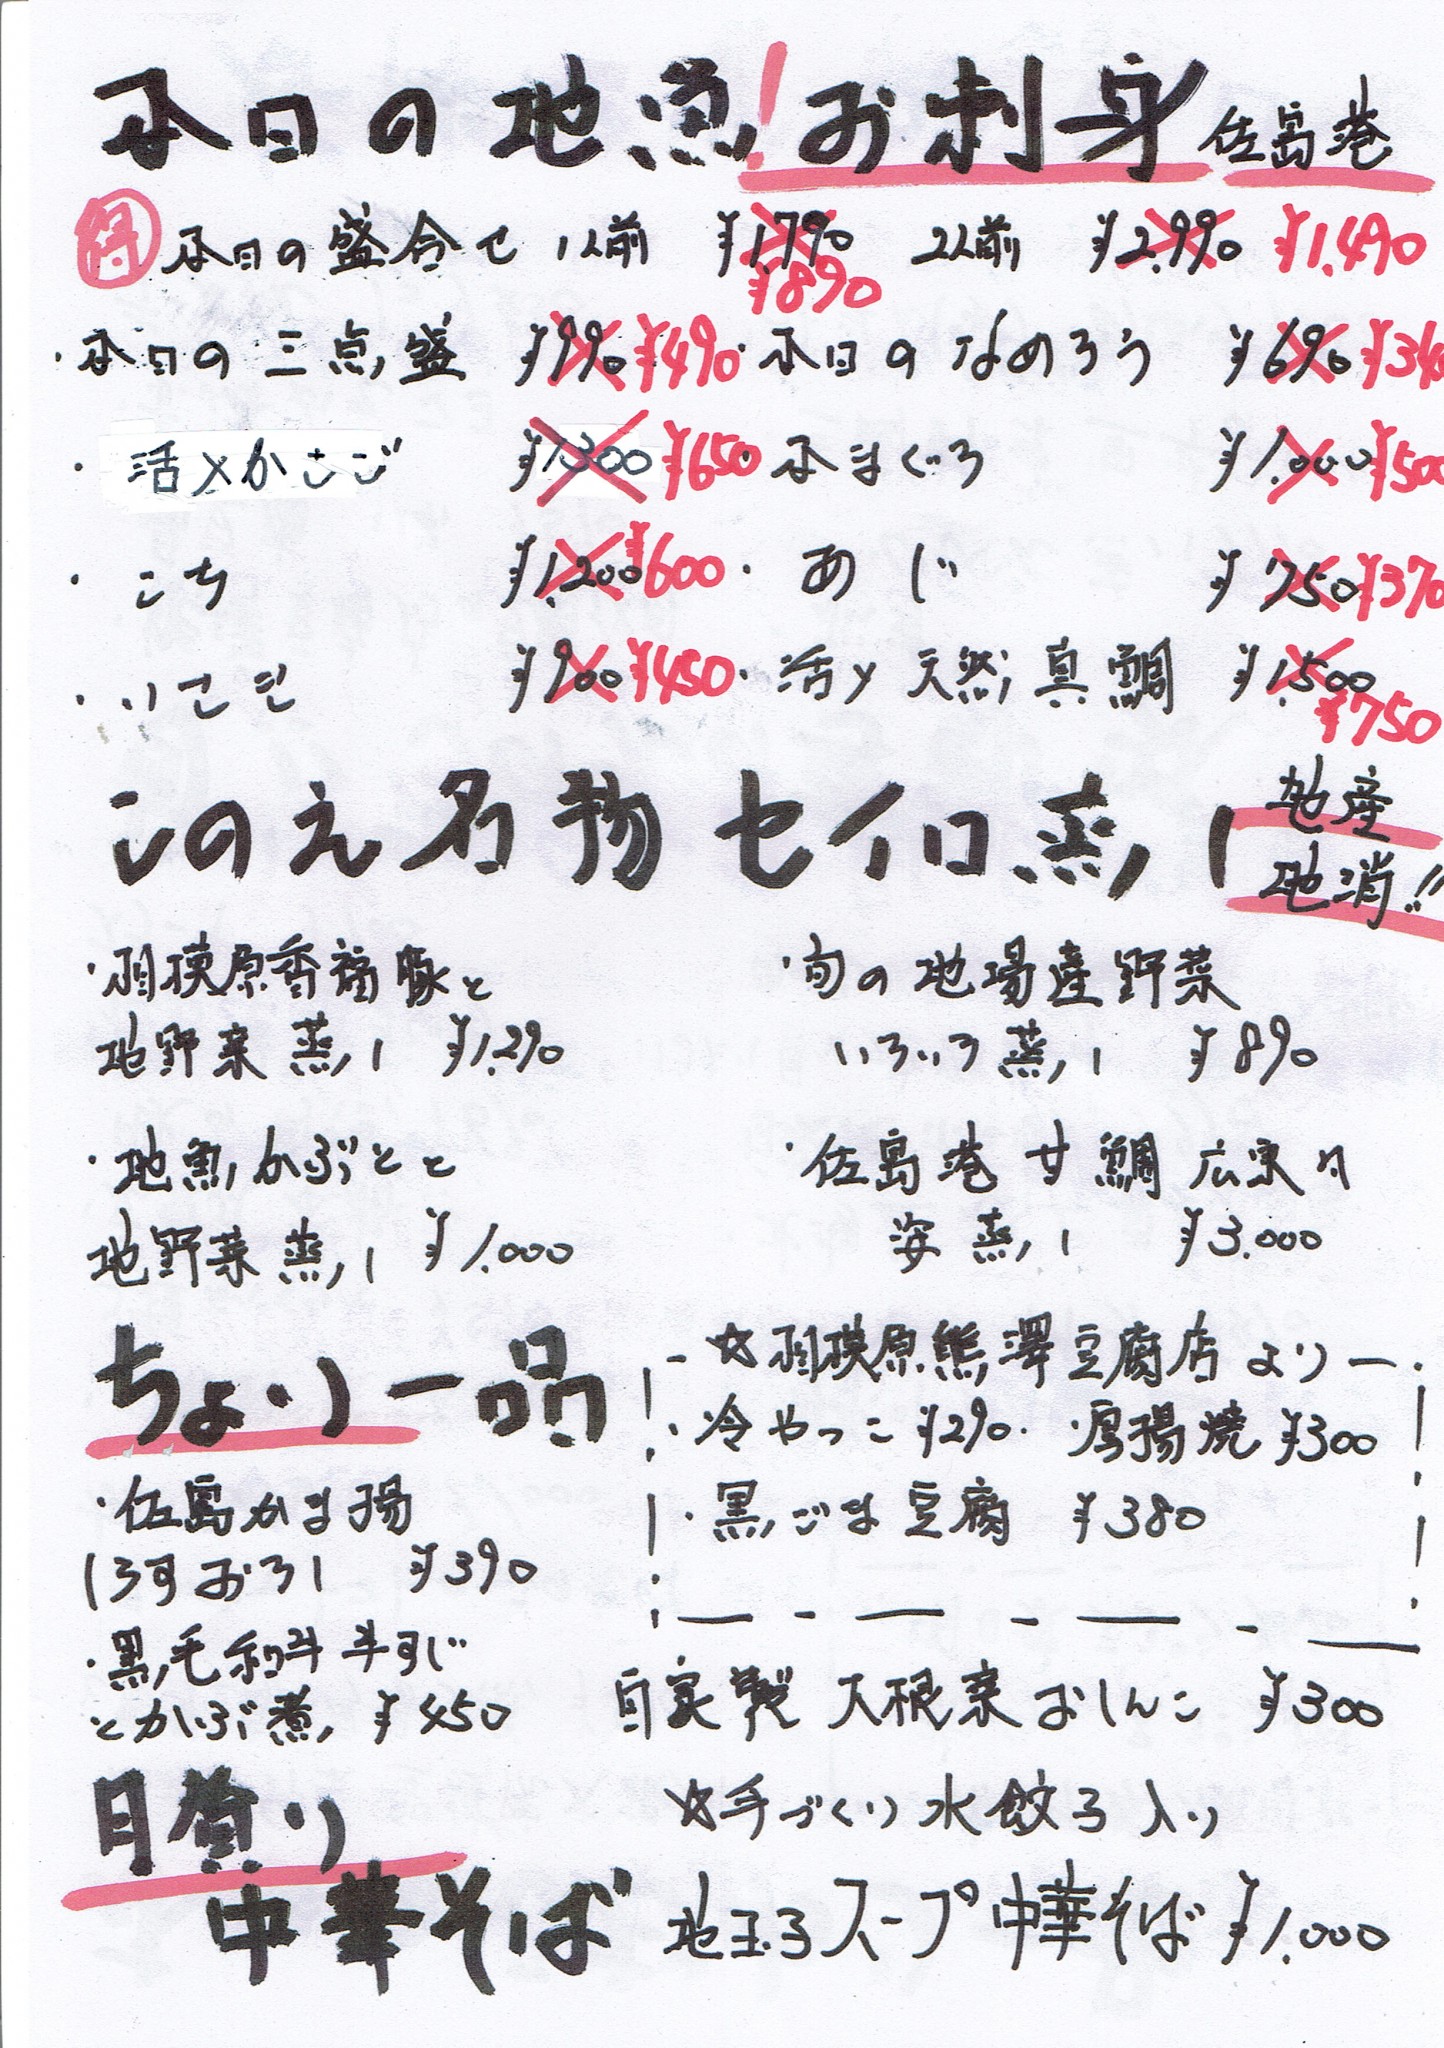 本日の地魚!お刺身 佐島港
得 本日の盛合せ 1人前 ¥1,790 ¥890 2人前 ¥2,990 ¥1,490
・本日の三点盛 ¥990 ¥490 ・本日のなめろう ¥690 ¥340
・活〆かさご ¥1,300 ¥650 ・本まぐろ ¥1,000 ¥500
・こち ¥1,200 ¥600 ・あじ ¥750 ¥370
・いさき ¥900 ¥450 ・活〆天然真鯛 ¥1,500 ¥750
このえ名物セイロ蒸し 地産
地消!!
・相模原香福豚と
地野菜蒸し ¥1,290
・旬の地場産野菜
いろいろ蒸し ¥890
・地魚かぶとと
地野菜蒸し ¥1,000
・佐島港甘鯛広東風
姿蒸し ¥3,000
ちょい一品
☆相模原熊澤豆腐店より
・冷やっこ ¥290 ・厚揚焼 ¥300
・黒ごま豆腐 ¥380
・佐島かま揚
しらすおろし ¥390
・黒毛和牛牛すじ
とかぶ煮 ¥450
自家製大根菜おしんこ ¥300
日替り
中華そば
☆手づくり水餃子入り
地玉子スープ中華そば ¥1,000